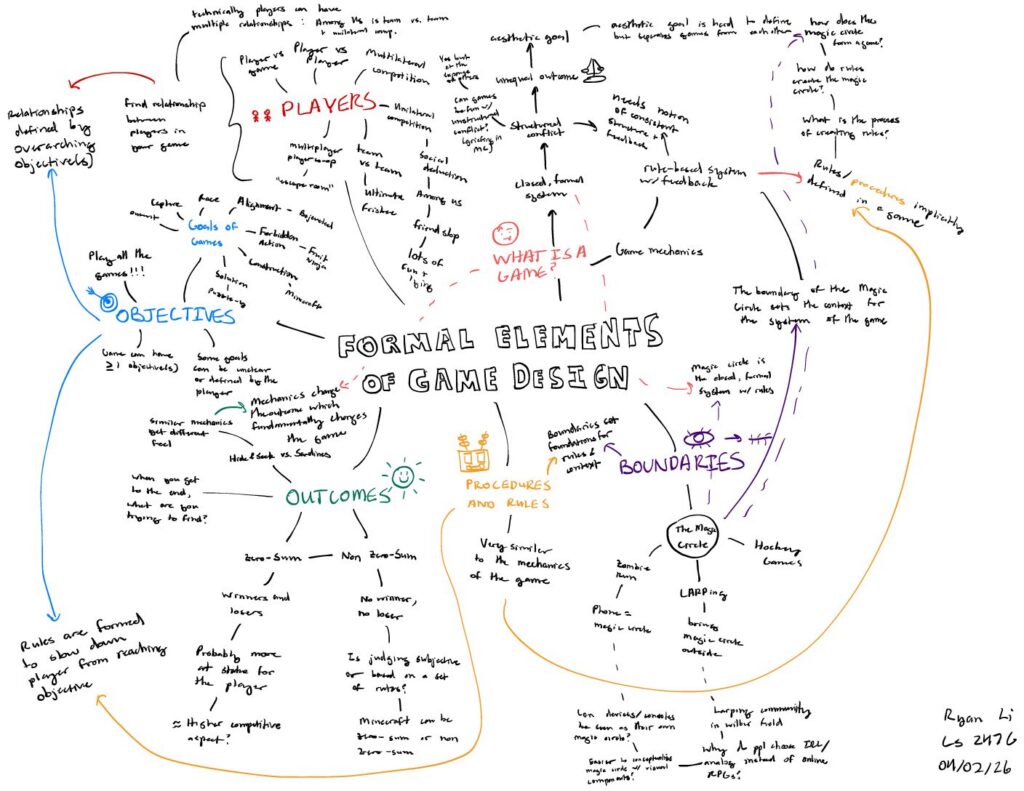 technically players can have
multiple relationships : Among Us is team vs. team
+ unilateral comp.
Relationships
defined by
overarching
objective(s)
find relationship
between
players in
your game
Player vs
game
Player vs
Player
Multilateral
competition
PLAYERS
Unilateral
competition
multiplayer
player co-op
"escape room"
team
vs team
Ultimate
Frisbee
Social
deduction
Among us
friendslop
lots of
fun +
lying
aesthetic goal
aesthetic goal is hard to define
but separates games from each other
unequal outcome
can games
be fun w/
unstructured
conflict?
(griefing in
MC)
structured
conflict
needs notion
of consistent
structure +
feedback
closed, formal
system
rule-based system
w/ feedback
WHAT IS A
GAME?
Game mechanics
how does the
magic circle
form a game?
how do rules
create the magic
circle?
What is the process
of creating rules?
Rules/procedures implicitly
defined in a game
The boundary of the Magic
Circle sets the context for
the system of the game
Capture
Race
Alignment - Bejeweled
Goals of
Games
Forbidden
Action
Fruit
Ninja
Construction
Minecraft
Solution
Play all the
games!!!
OBJECTIVES
Game can have
≥ 1 objective(s)
Some goals
can be unclear
or defined by the
player
FORMAL ELEMENTS
OF GAME DESIGN
Similar mechanics
get different
feel
Mechanics change
the outcome which
fundamentally changes
the game
Hide & Seek vs. Sardines
when you get
to the end,
what are you
trying to find?
OUTCOMES
Zero-Sum
Non Zero-Sum
Winners and
losers
No winner,
no loser
Probably more
at stake for
the player
Is judging subjective
or based on a set
of rules?
≈ Higher competitive
aspect?
Minecraft can be
zero-sum or non
zero-sum
Rules are formed
to slow down
player from reaching
objective
PROCEDURES
AND RULES
Very similar
to the mechanics
of the game
Boundaries set
foundations for
rules &
context
Magic circle is
the closed, formal
system w/ rules
BOUNDARIES
The Magic
Circle
Hockey
Games
Zombie
Run
Phone =
magic circle
LARPing
brings
magic circle
outside
Can devices/consoles
be seen as their own
magic circle?
Easier to conceptualize
magic circle w/ visual
components?
Larping community
in wilbur field
Why do ppl choose IRL/
analog instead of online
RPGs?
Ryan Li
CS 247G
04/02/26